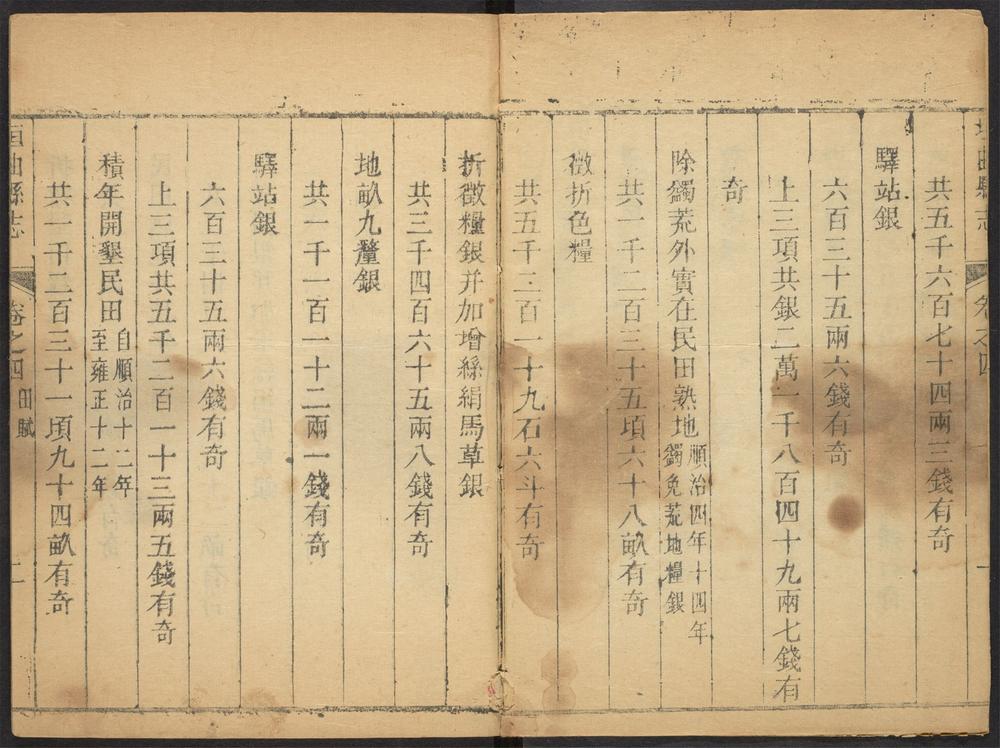 曲縣志
卷之四
共五千六百七十四兩三錢有奇
驛站銀
六百三十五兩六錢有奇
上三項共銀二萬一千八百四十九兩七錢有
奇
除蠲荒外實在民田熟地順治四年十四年
蠲免荒地糧銀
共一千二百三十五頃六十八畝有奇
徵折色糧
共五千二百一十九石六斗有奇
折徵糧銀并加增絲絹馬草銀
共三千四百六十五兩八錢有奇
地畝九釐銀
共一千一百一十二兩一錢有奇
驛站銀
六百三十五兩六錢有奇
上三項共五千二百一十三兩五錢有奇
積年開墾民田自順治十二年
至雍正十二年
共一千二百三十一頃九十四畝有奇
垣曲縣志
卷之四 田賦
二